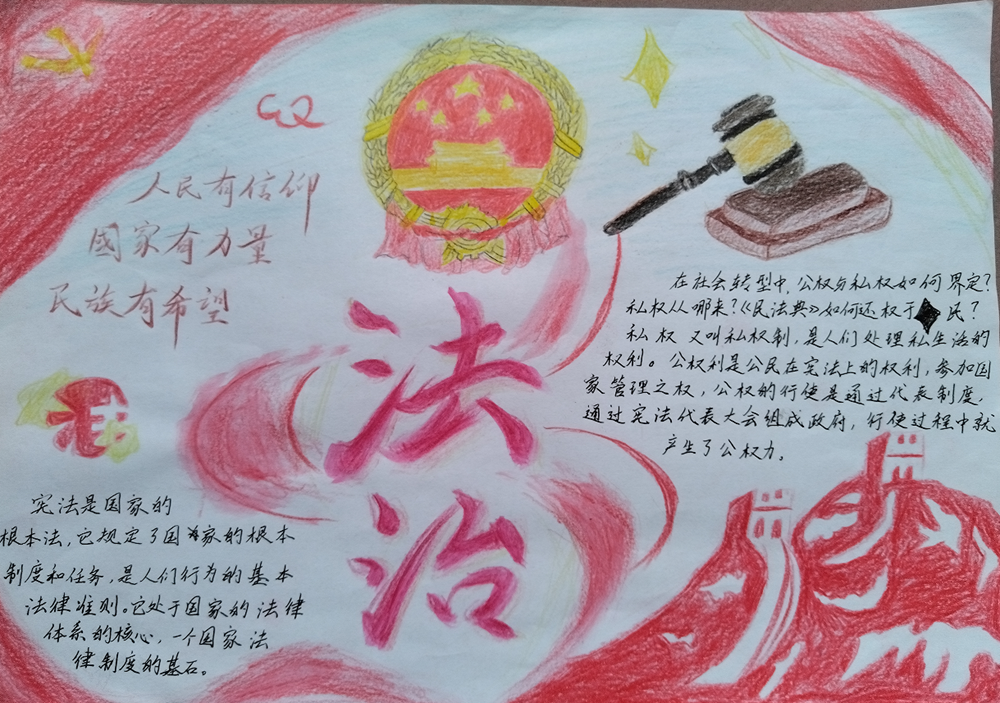 人民有信仰
國家有力量
民族有希望
法
治
在社会转型中,公权与私权如何界定?
私权从哪来?《民法典》如何还权于民?
私权又叫私权制,是人们处理私生活的
权利。公权利是公民在宪法上的权利,参加国
家管理之权,公权的行使是通过代表制度,
通过宪法代表大会组成政府,行使过程中就
产生了公权力。
宪法是国家的
根本法,它规定了国家的根本
制度和任务,是人们行为的基本
法律准则。它处于国家的法律
体系的核心,一个国家法
律制度的基石。